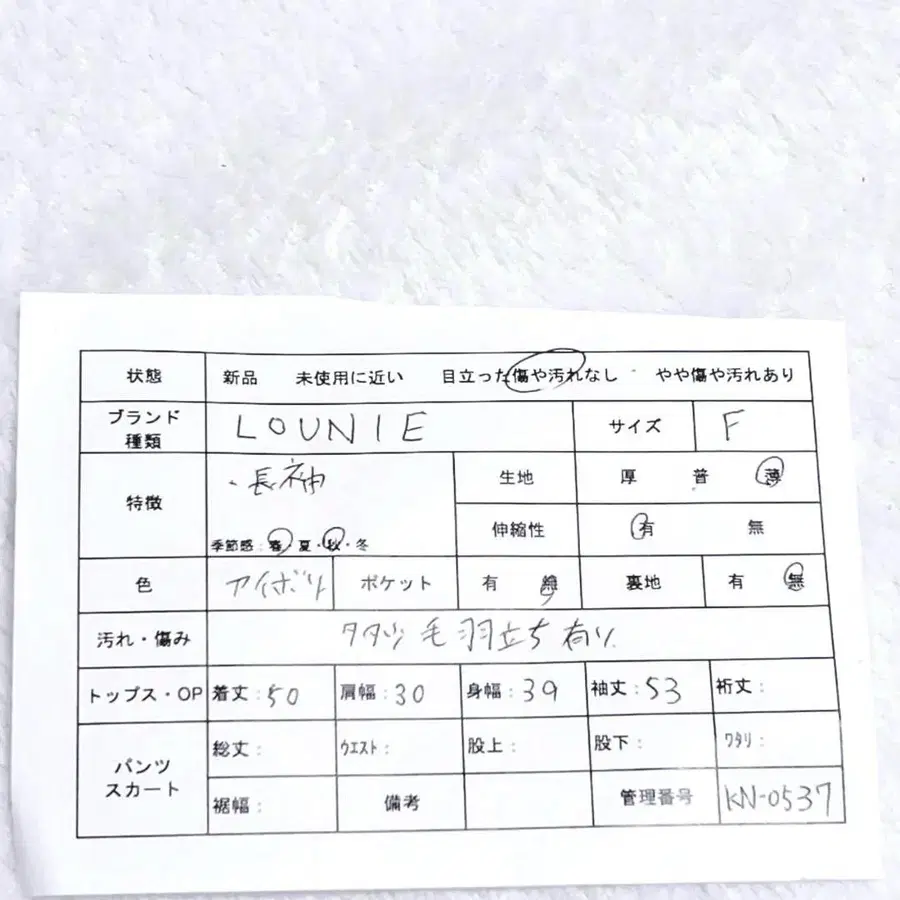 状態 新品 未使用に近い 目立った傷や汚れなし やや傷や汚れあり
ブランド
種類
LOUNIE サイズ F
特徴 ・長袖
季節感：春・夏・秋・冬
生地 厚 普 薄
伸縮性 有 無
色 アイボリ ポケット 有 無 裏地 有 無
汚れ・傷み 毛羽立ち有り
トップス・OP 着丈：50 肩幅：30 身幅：39 袖丈：53 裄丈：
パンツ
スカート
総丈： ｳｴｽﾄ： 股上： 股下： ﾜﾀﾘ：
裾幅： 備考 管理番号 KN-0537